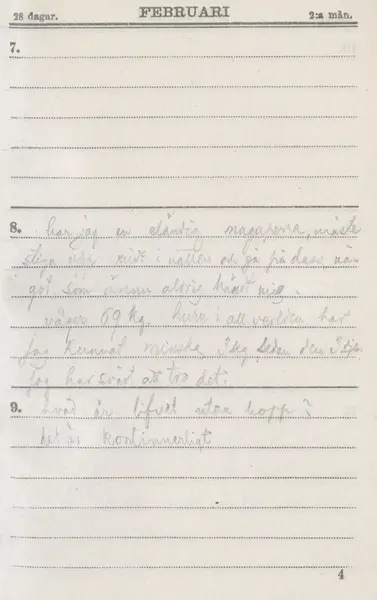 28 dagar. FEBRUARI 2:a mån.
7.
8. har jag en eländig magaperra, måste
stiga upp midt i natten och gå på dass, nå-
got som ännu aldrig händt mig.
väger 69 kg. huru i all verlden har
jag kunnat minska 3 kg sedan den
Jag har svårt att tro det.
9. hvad är lifvet utan hopp?
det är kontinnerligt
4